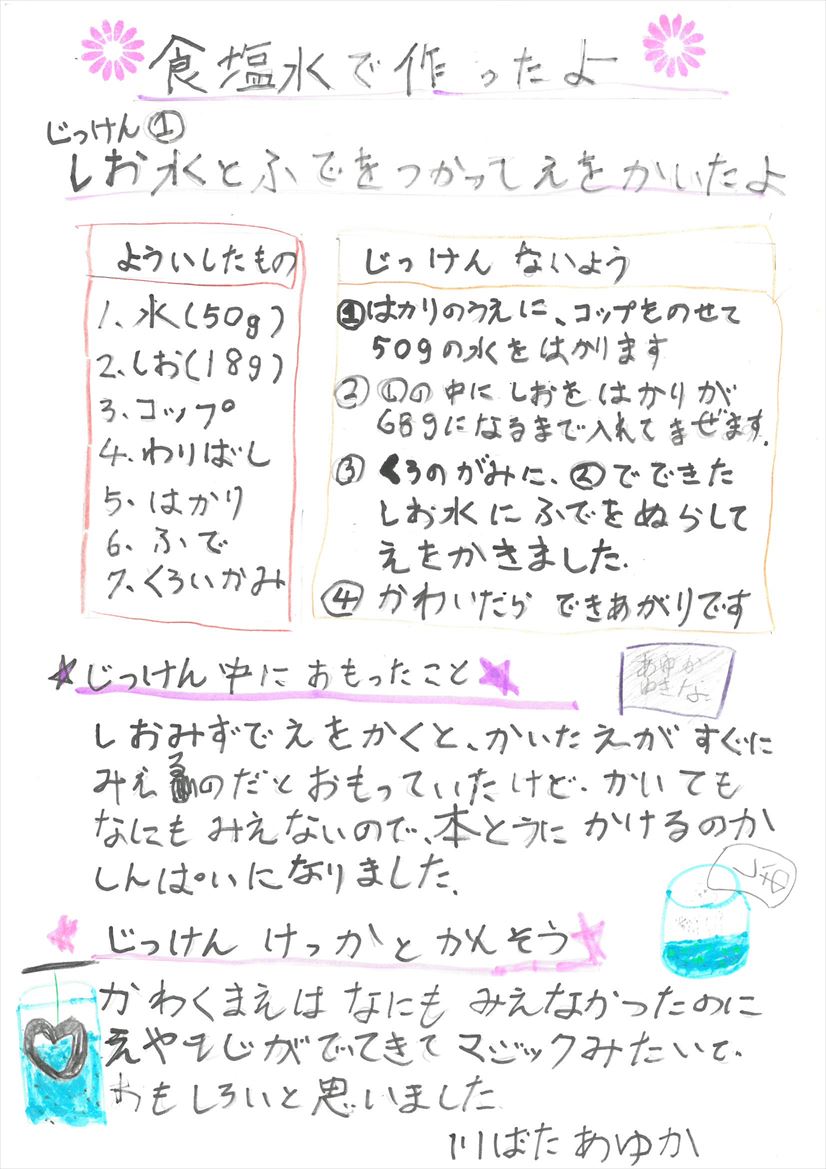 食塩水で作ったよ
じっけん①
しお水とふでをつかってえをかいたよ
よういしたもの
1、水(50g)
2、しお(18g)
3、コップ
4、わりばし
5、はかり
6、ふで
7、くろいかみ
じっけん ないよう
①はかりのうえに、コップをのせて
50gの水をはかります
② ①の中にしおをはかりが
68gになるまで入れてまぜます。
③ くろのがみに、②でできた
しお水にふでをぬらして
えをかきました。
④ かわいたら できあがりです
★じっけん中におもったこと★
あゆか
ゆきな
しおみずでえをかくと、かいたえがすぐに
みえるのだとおもっていたけど、かいても
なにもみえないので、本とうにかけるのか
しんぱいになりました。
しお
★じっけん けっかとかんそう★
かわくまえはなにもみえなかったのに
えやもじがでてきてマジックみたいで、
おもしろいと思いました
川ばたあゆか